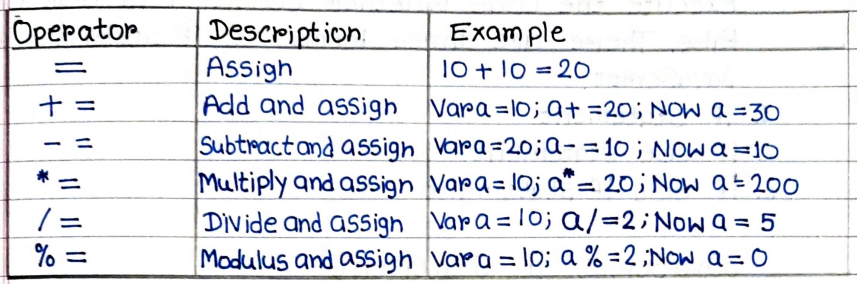 Operator Description Example
= Assign 10 + 10 = 20
+ = Add and assign Var a = 10; a + = 20; Now a = 30
- = Subtract and assign Var a = 20; a - = 10; Now a = 10
* = Multiply and assign Var a = 10; a* = 20; Now a = 200
/ = Divide and assign Var a = 10; a / = 2; Now a = 5
% = Modulus and assign Var a = 10; a % = 2; Now a = 0